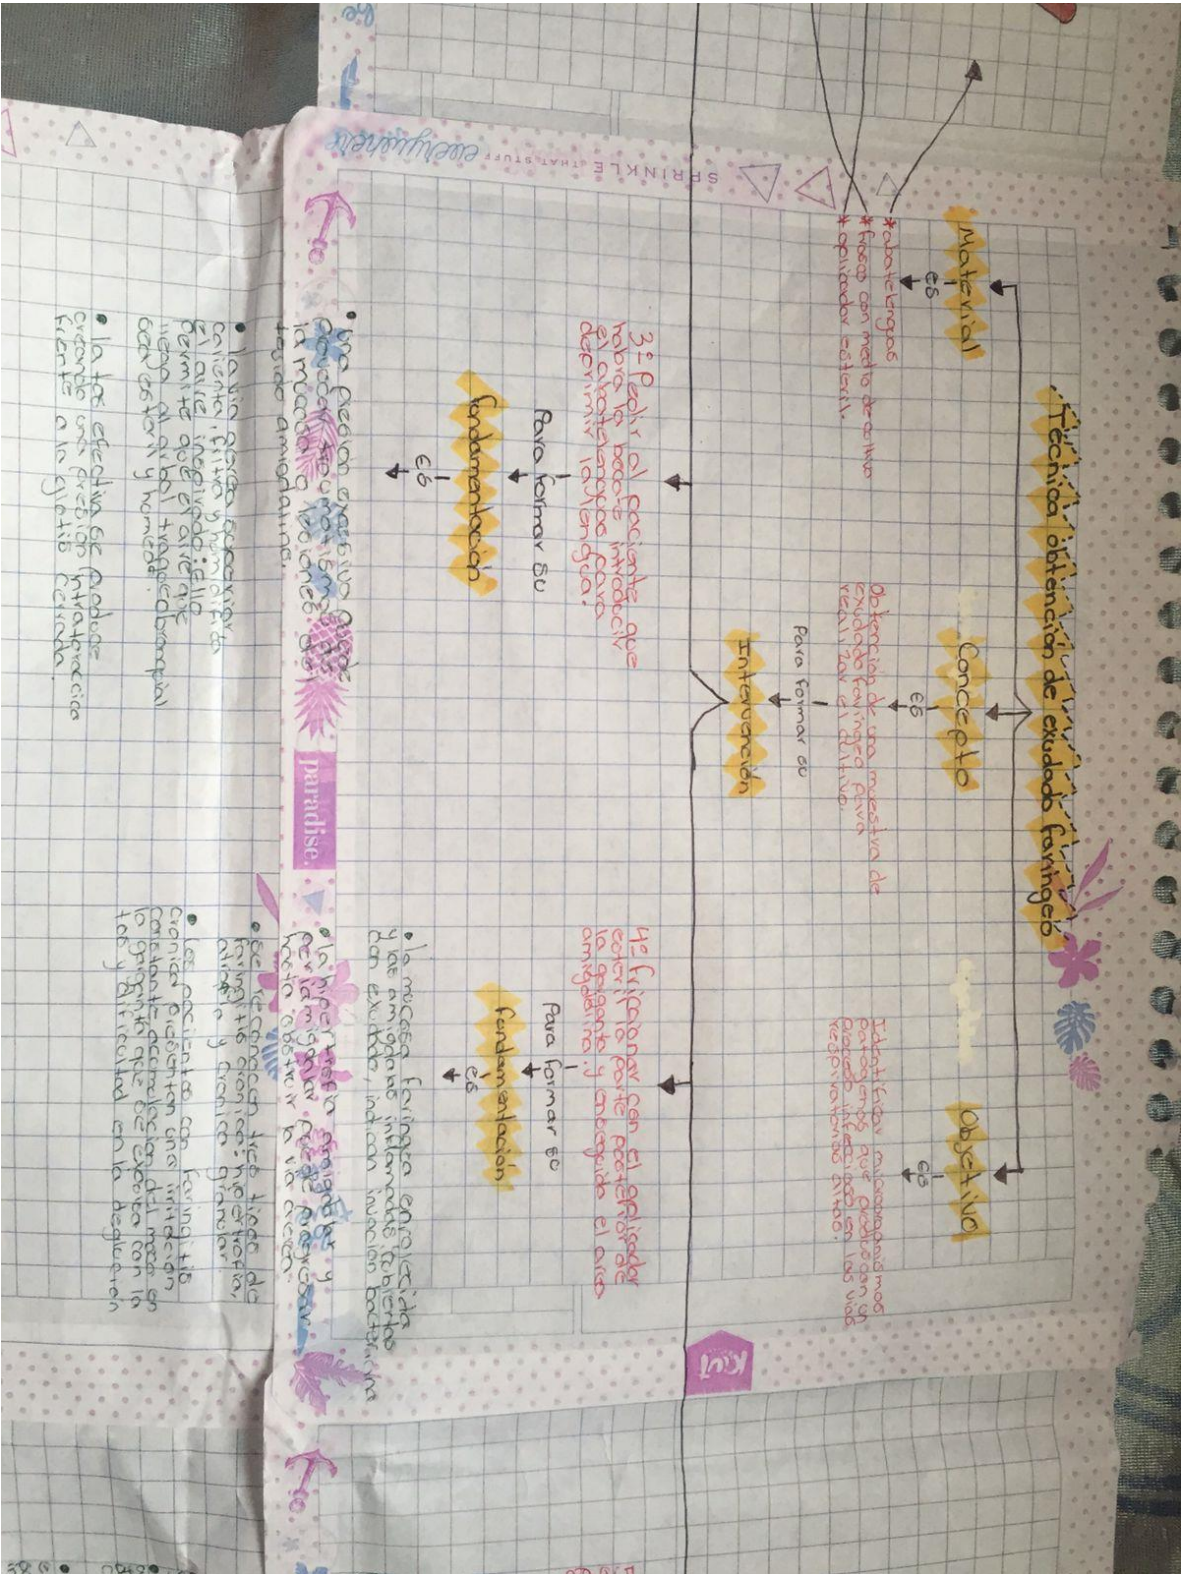 Técnica obtención de exudado faringeo
Material
es
*abatelenguas
*frasco con medio de cultivo
*aplicador esteril.
Concepto
es
Obtención de una muestra de
exudado faringeo para
realizar el cultivo.
Objetivo
es
Identificar microorganismos
patogenos que produscan un
proceso infeccioso en las vias
respiratorias altas.
Para formar su
Intervención
3º Pedir al paciente que
habra la boca e introducir
el abatelenguas para
deprimir la lengua.
Para formar su
fundamentación
es
• Una presion excesiva puede
provocar traumatismo de
la mucosa y lesiones del
tejido amigdalino.
• la via aerea superior
calienta, filtra y humidifica
el aire inspirado: ello
permite que el aire que
llega al arbol traqueobronquial
sea esteril y humedo.
• la tos efectiva se produce
creando una presion intratoracica
frente a la glotis cerrada.
4º friccionar con el aplicador
esteril la parte posterior de
la garganta y enseguida el area
amigdalina.
Para formar su
fundamentación
es
• la mucosa faringea enrojecida
y las amigdalas inflamadas cubiertas
con exudado, indican invacion bacteriana
• la hipertrofia amigdalar y
periamigdalar puede progresar
hasta obstruir la via aerea
• Se reconocen tres tipos de
faringitis cronica: hipertrofia,
atrofia y cronica granular
• los pacientes con faringitis
cronica presentan una irritacion
constante, acumulacion del moco en
la garganta que se expulsa con la
tos y dificultad en la deglución
SPRINKLE THAT STUFF
everywhere
paradise.
KIUT